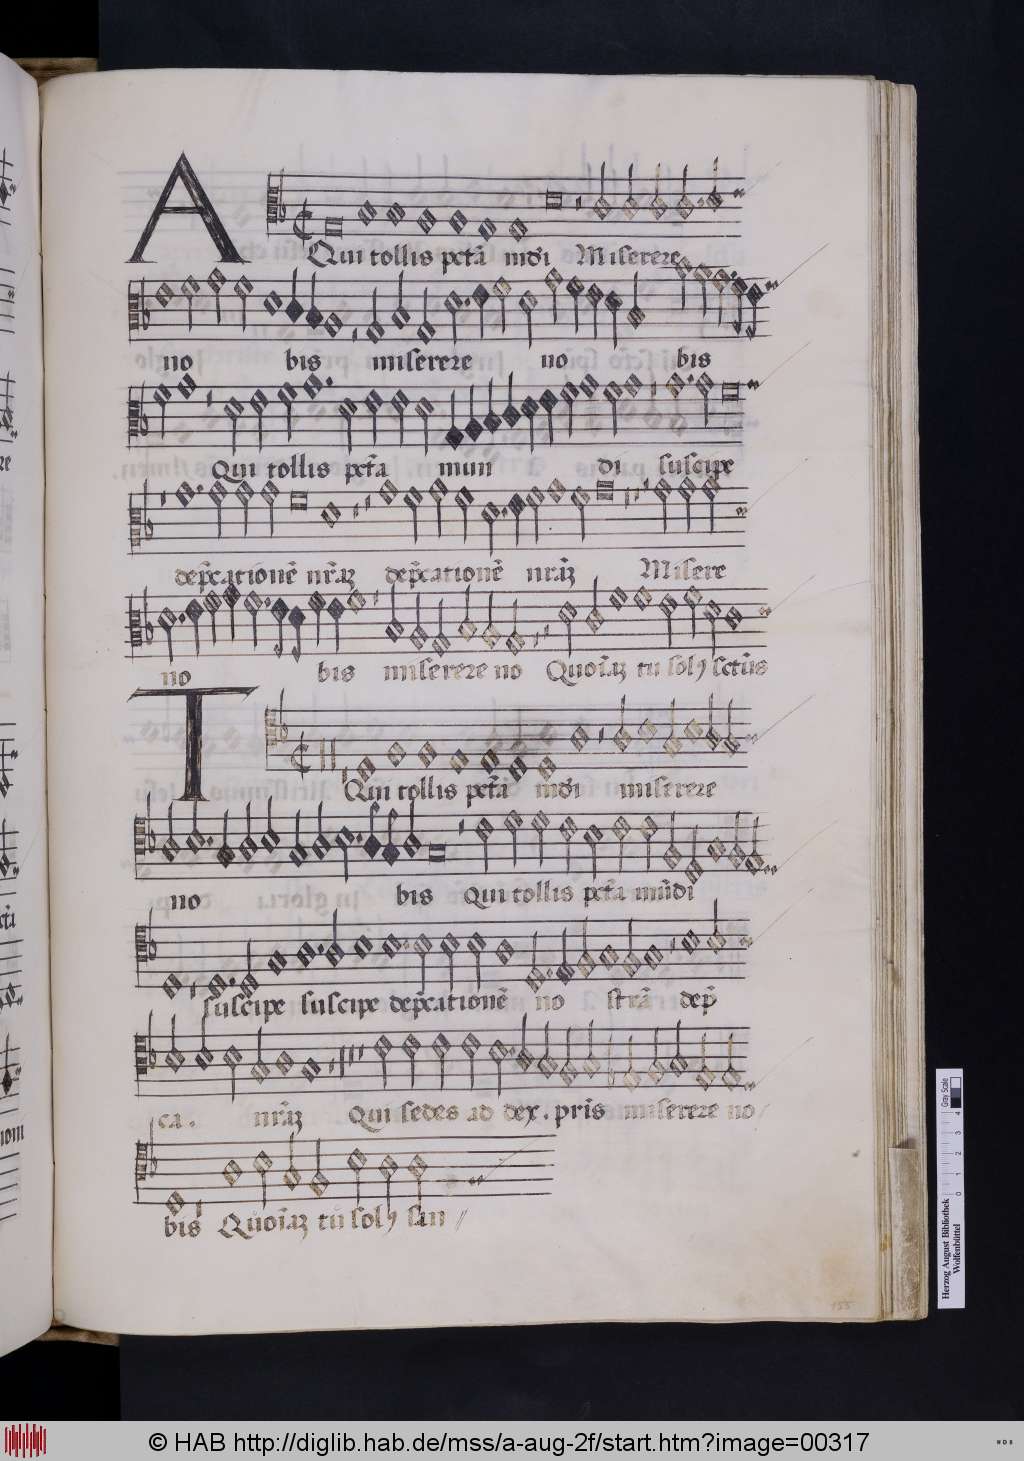 A
Qui tollis pctā mūdi Miserere
no bis miserere no bis
Qui tollis pctā mun di suscipe
dep̄cationē nr̄aꝫ dep̄cationē nraꝫ Misere
no bis miserere no Quoīaꝫ tu solꝰ sctūs
T
Qui tollis pctā mūdi miserere
no bis Qui tollis pctā mūdi
suscipe suscipe dep̄cationē no strā dep̄
ca . nr̄aꝫ Qui sedes ad dex . pris̄ miserere no
bis Quoīaꝫ tu solꝰ san //
155
Herzog August Bibliothek
Wolfenbüttel
0 1 2 3 4
Gray Scale
© HAB http://diglib.hab.de/mss/a-aug-2f/start.htm?image=00317